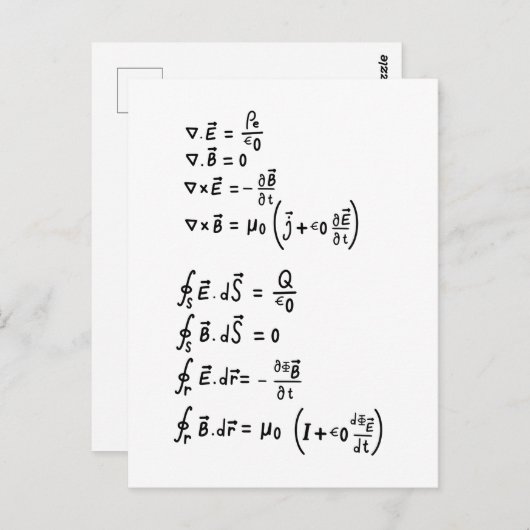 ∇.E⃗ = ρₑ/ϵ0
∇.B⃗ = 0
∇×E⃗ = -∂B⃗/∂t
∇×B⃗ = μ0 (j⃗ + ϵ0 ∂E⃗/∂t)
∮ₛ E⃗.dS⃗ = Q/ϵ0
∮ₛ B⃗.dS⃗ = 0
∮r E⃗.dr⃗ = - ∂ΦB⃗/∂t
∮r B⃗.dr⃗ = μ0 (I + ϵ0 dΦE⃗/dt)